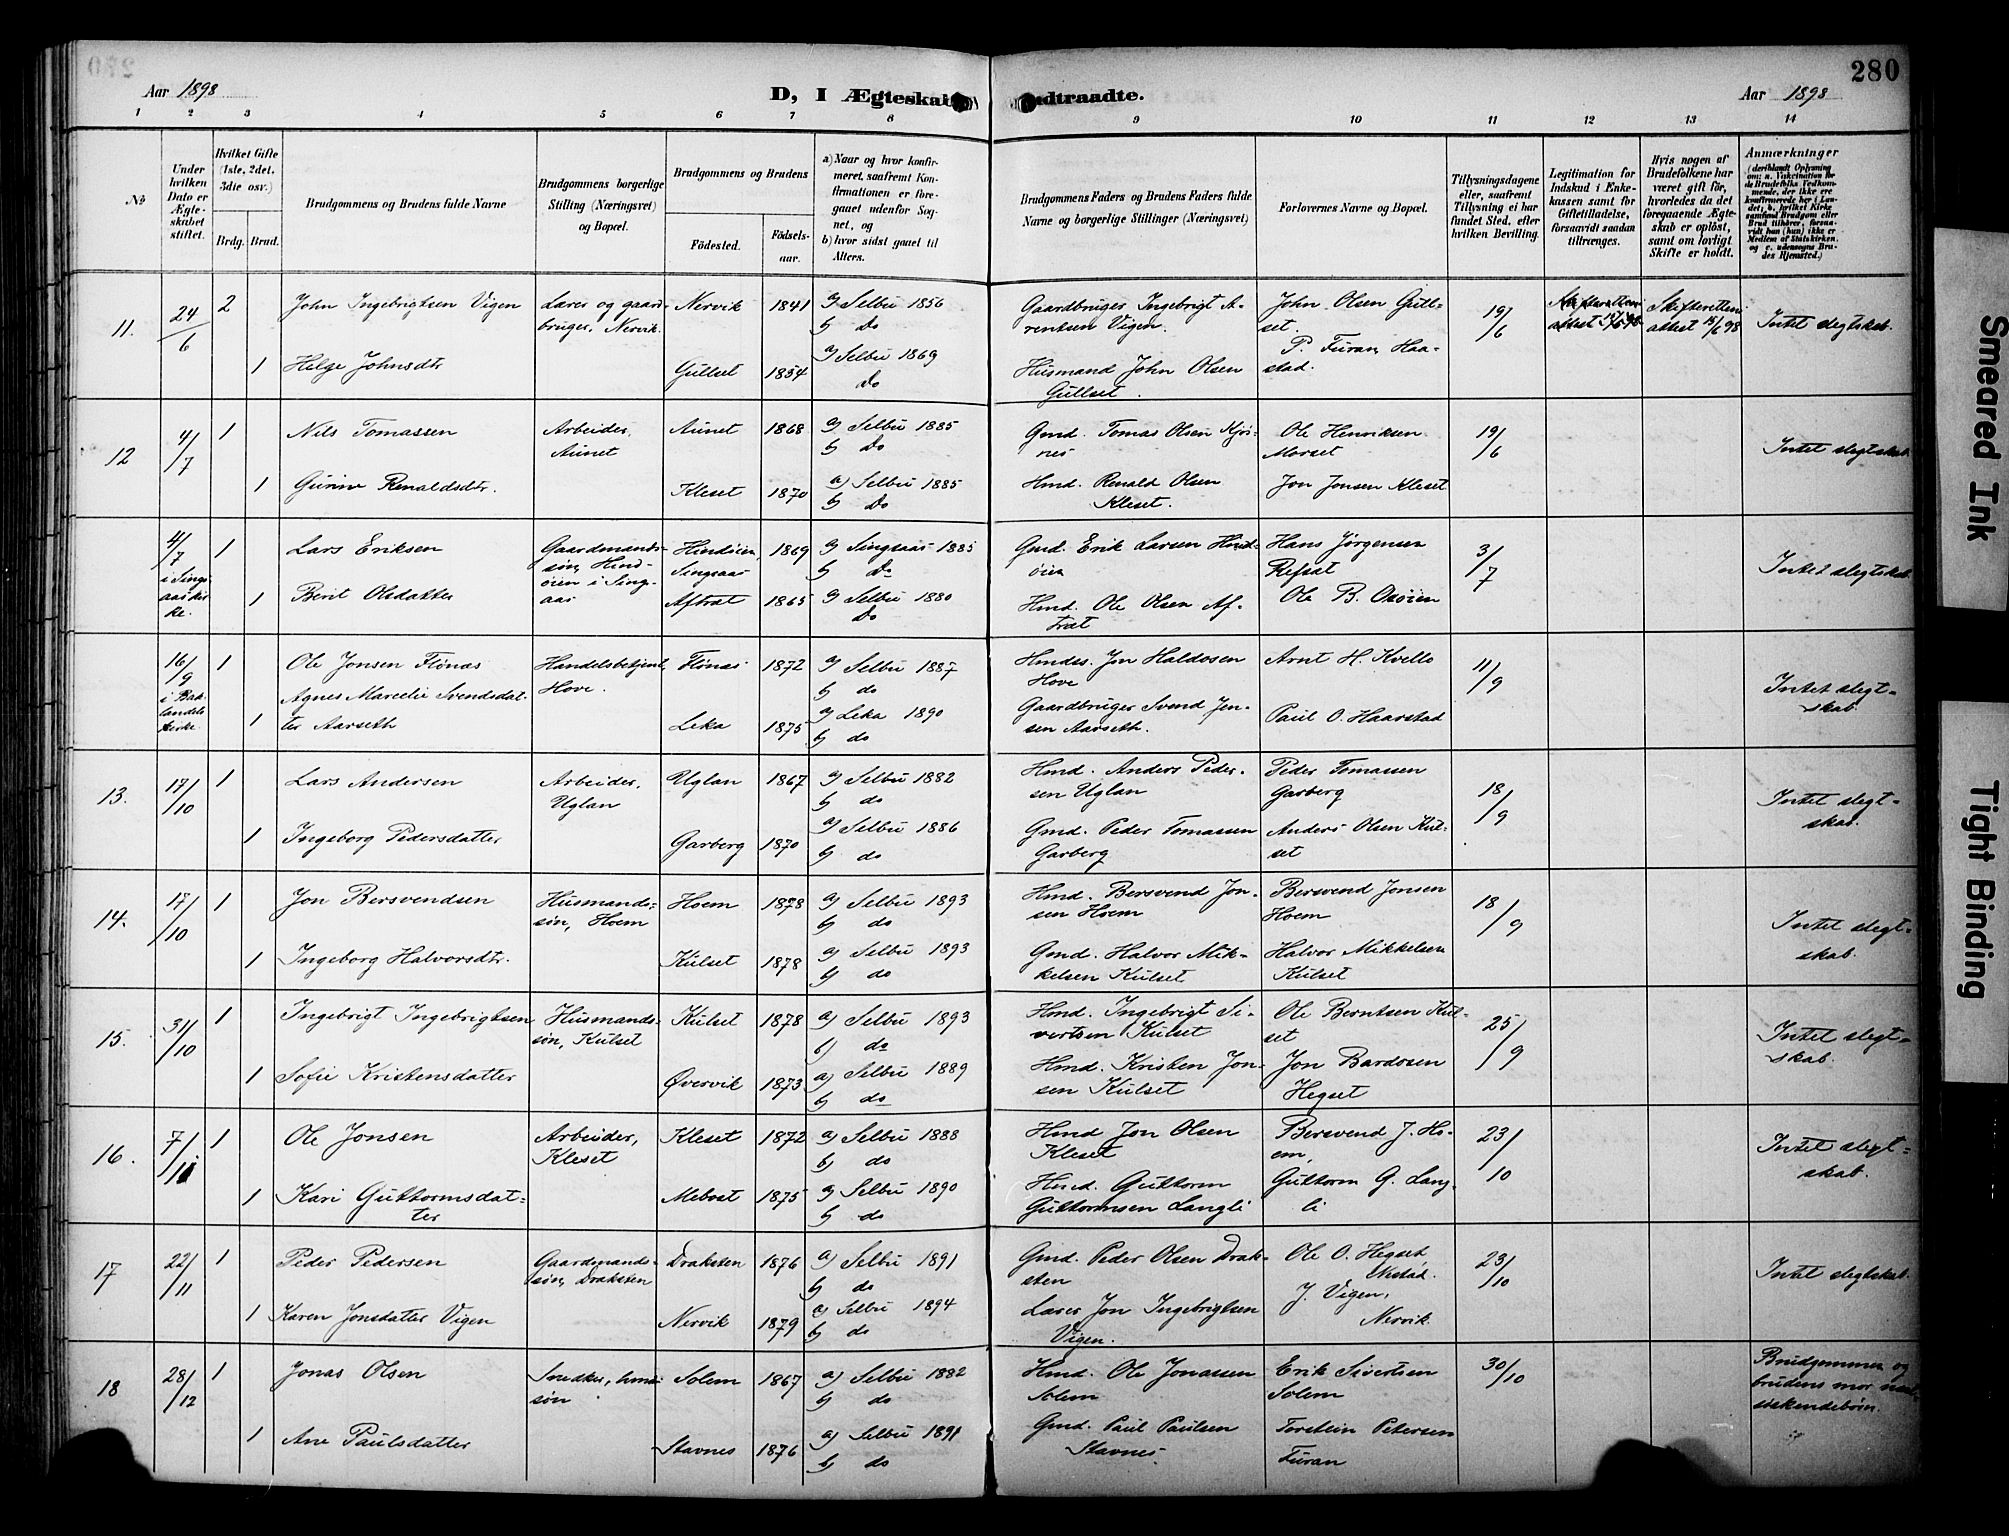 280
Aar 1898
D, I Ægteskab Indtraadte.
Aar 1898
1 2 3 4 5 6 7 8 9 10 11 12 13 14
No
Under hvilken Dato er Ægteskabet stiftet.
Hvilket Gifte (1ste, 2det, 3die osv.)
Brdg. Brud.
Brudgommens og Brudens fulde Navne
Brudgommens borgerlige Stilling (Næringsvei) og Bopæl.
Brudgommens og Brudens
Födested.
Födsels-aar.
a) Naar og hvor konfirmeret, saafremt Konfirmationen er foregaaet udenfor Sognet, og
b) hvor sidst gaaet til Alters.
Brudgommens Faders og Brudens Faders fulde Navne og borgerlige Stillinger (Næringsvei)
Forlovernes Navne og Bopæl.
Tillysningsdagene eller, saafremt Tillysning ei har fundet Sted, efter hvilken Bevilling.
Legitimation for Indskud i Enkekassen samt for Giftetilladelse, forsaavidt saadan tiltrænges.
Hvis nogen af Brudefolkene har været gift för, hvorledes da det foregaaende Ægteskab er oplöst, samt om lovligt Skifte er holdt.
Anmærkninger
(deriblandt Oplysning om: a. Vakcination for de Brudefolks Vedkommende, der ikke ere konfirmerede her i Landet; b. hvilket Kirkesamfund Brudgom eller Brud tilhører, forsaavidt han (hun) ikke er Medlem af Statskirken, og c. udensogns Brudes Hjemsted.)
11. 24/6 2 John Ingebrigtsen Vigen Lærer og gaardbruger, Nervik. Nervik 1841 a) Selbu 1856 b) Do Gaardbruger Ingebrigt Arentsen Vigen. John Olsen Gullset. 19/6 Skifteretten attest 15/6 98 Intet slegtskab.
1 Helge Johnsdtr Gullset 1854 a) Selbu 1869 Do Husmand John Olsen Gullset. P. Furan, Haastad.
12 4/7 1 Nils Tomassen Arbeider, Aunet Aunet 1868 a) Selbu 1885 b) Do Gmd. Tomas Olsen Kjösnes Ole Henriksen Morset 19/6 Intet slegtskab.
1 Gurine Renaldsdtr. Kleset 1870 a) Selbu 1885 b) Do Hmd. Renald Olsen Kleset. Jon Jonsen Kleset
4/7 i Singsaas kirke. 1 Lars Eriksen Gaardmandssön, Hindöien i Singsaas Hindöien Singsaas 1869 a) Singsaas 1885 b) Do Gmd. Erik Larsen Hindöien Hans Jörgensen Refsat 3/7 Intet slegtskab.
1 Berit Olsdatter Aftrat 1865 a) Selbu 1880 Do Hmd. Ole Olsen Aftrat Ole B. Osöien
16/9 i Baklandets kirke. 1 Ole Jonsen Flönæs Handelsbetjent Hove. Flönæs 1872 a) Selbu 1887 b) do Hmdss. Jon Haldosen Hove Arnt H. Kvello 11/9 Intet slegtskab.
1 Agnes Marcelie Svendsdatter Aarseth Leka 1875 a) Leka 1890 b) do Gaardbruger Svend Jensen Aarseth. Paul O. Haarstad
13. 17/10 1 Lars Andersen Arbeider, Uglan Uglan 1867 a) Selbu 1882 b) do Hmd. Anders Pedersen Uglan Peder Tomassen Garberg 18/9 Intet slegtskab.
1 Ingeborg Pedersdatter Garberg 1870 a) Selbu 1886 b) do Gmd. Peder Tomassen Garberg Anders Olsen Kulset
14. 17/10 1 Jon Bersvendsen Husmandssön, Hoem Hoem 1878 a) Selbu 1893 b) do Hmd. Bersvend Jonsen Hoem Bersvend Jonsen Hoem 18/9 Intet slegtskab.
1 Ingeborg Halvorsdtr. Kulset 1878 a) Selbu 1893 b) do Gmd. Halvor Mikkelsen Kulset Halvor Mikkelsen Kulset
15. 31/10 1 Ingebrigt Ingebrigtsen Husmandssön, Kulset Kulset 1878 a) Selbu 1893 b) do Hmd. Ingebrigt Sivertsen Kulset Ole Berntsen Kulset 25/9 Intet slegtskab.
1 Sofie Kristensdatter Øvervik 1873 a) Selbu 1889 b) do Hmd. Kristen Jonsen Kulset Jon Bardosen Hegset
16. 7/11 1 Ole Jonsen Arbeider, Kleset Kleset 1872 a) Selbu 1888 b) do Hmd Jon Olsen Kleset Bersvend J. Hoem, 23/10 Intet slegtskab.
1 Kari Guttormsdatter Mebost 1875 a) Selbu 1890 b) do Hmd. Guttorm Guttormsen Langli Guttorm G. Langli
17 22/11 1 Peder Pedersen Gaardmandssön, Draksten Draksten 1876 a) Selbu 1891 b) do Gmd. Peder Olsen Draksten Ole O. Hegset Nestad. 23/10 Intet slegtskab.
1 Karen Jonsdatter Vigen Nervik 1879 a) Selbu 1894 b) do Lærer Jon Ingebrigtsen Vigen. J. Vigen, Nervik.
18 28/12 1 Jonas Olsen Snedker, hmdsön Solem 1867 a) Selbu 1882 b) do Hmd. Ole Jonassen Solem Erik Sivertsen Solem 30/10 Brudgommen og brudens mor næstsöskendebörn.
1 Ane Paulsdatter Stavnes 1876 a) Selbu 1891 b) do Gmd. Paul Paulsen Stavnes. Torstein Petersen Furan
Smeared Ink
Tight Binding